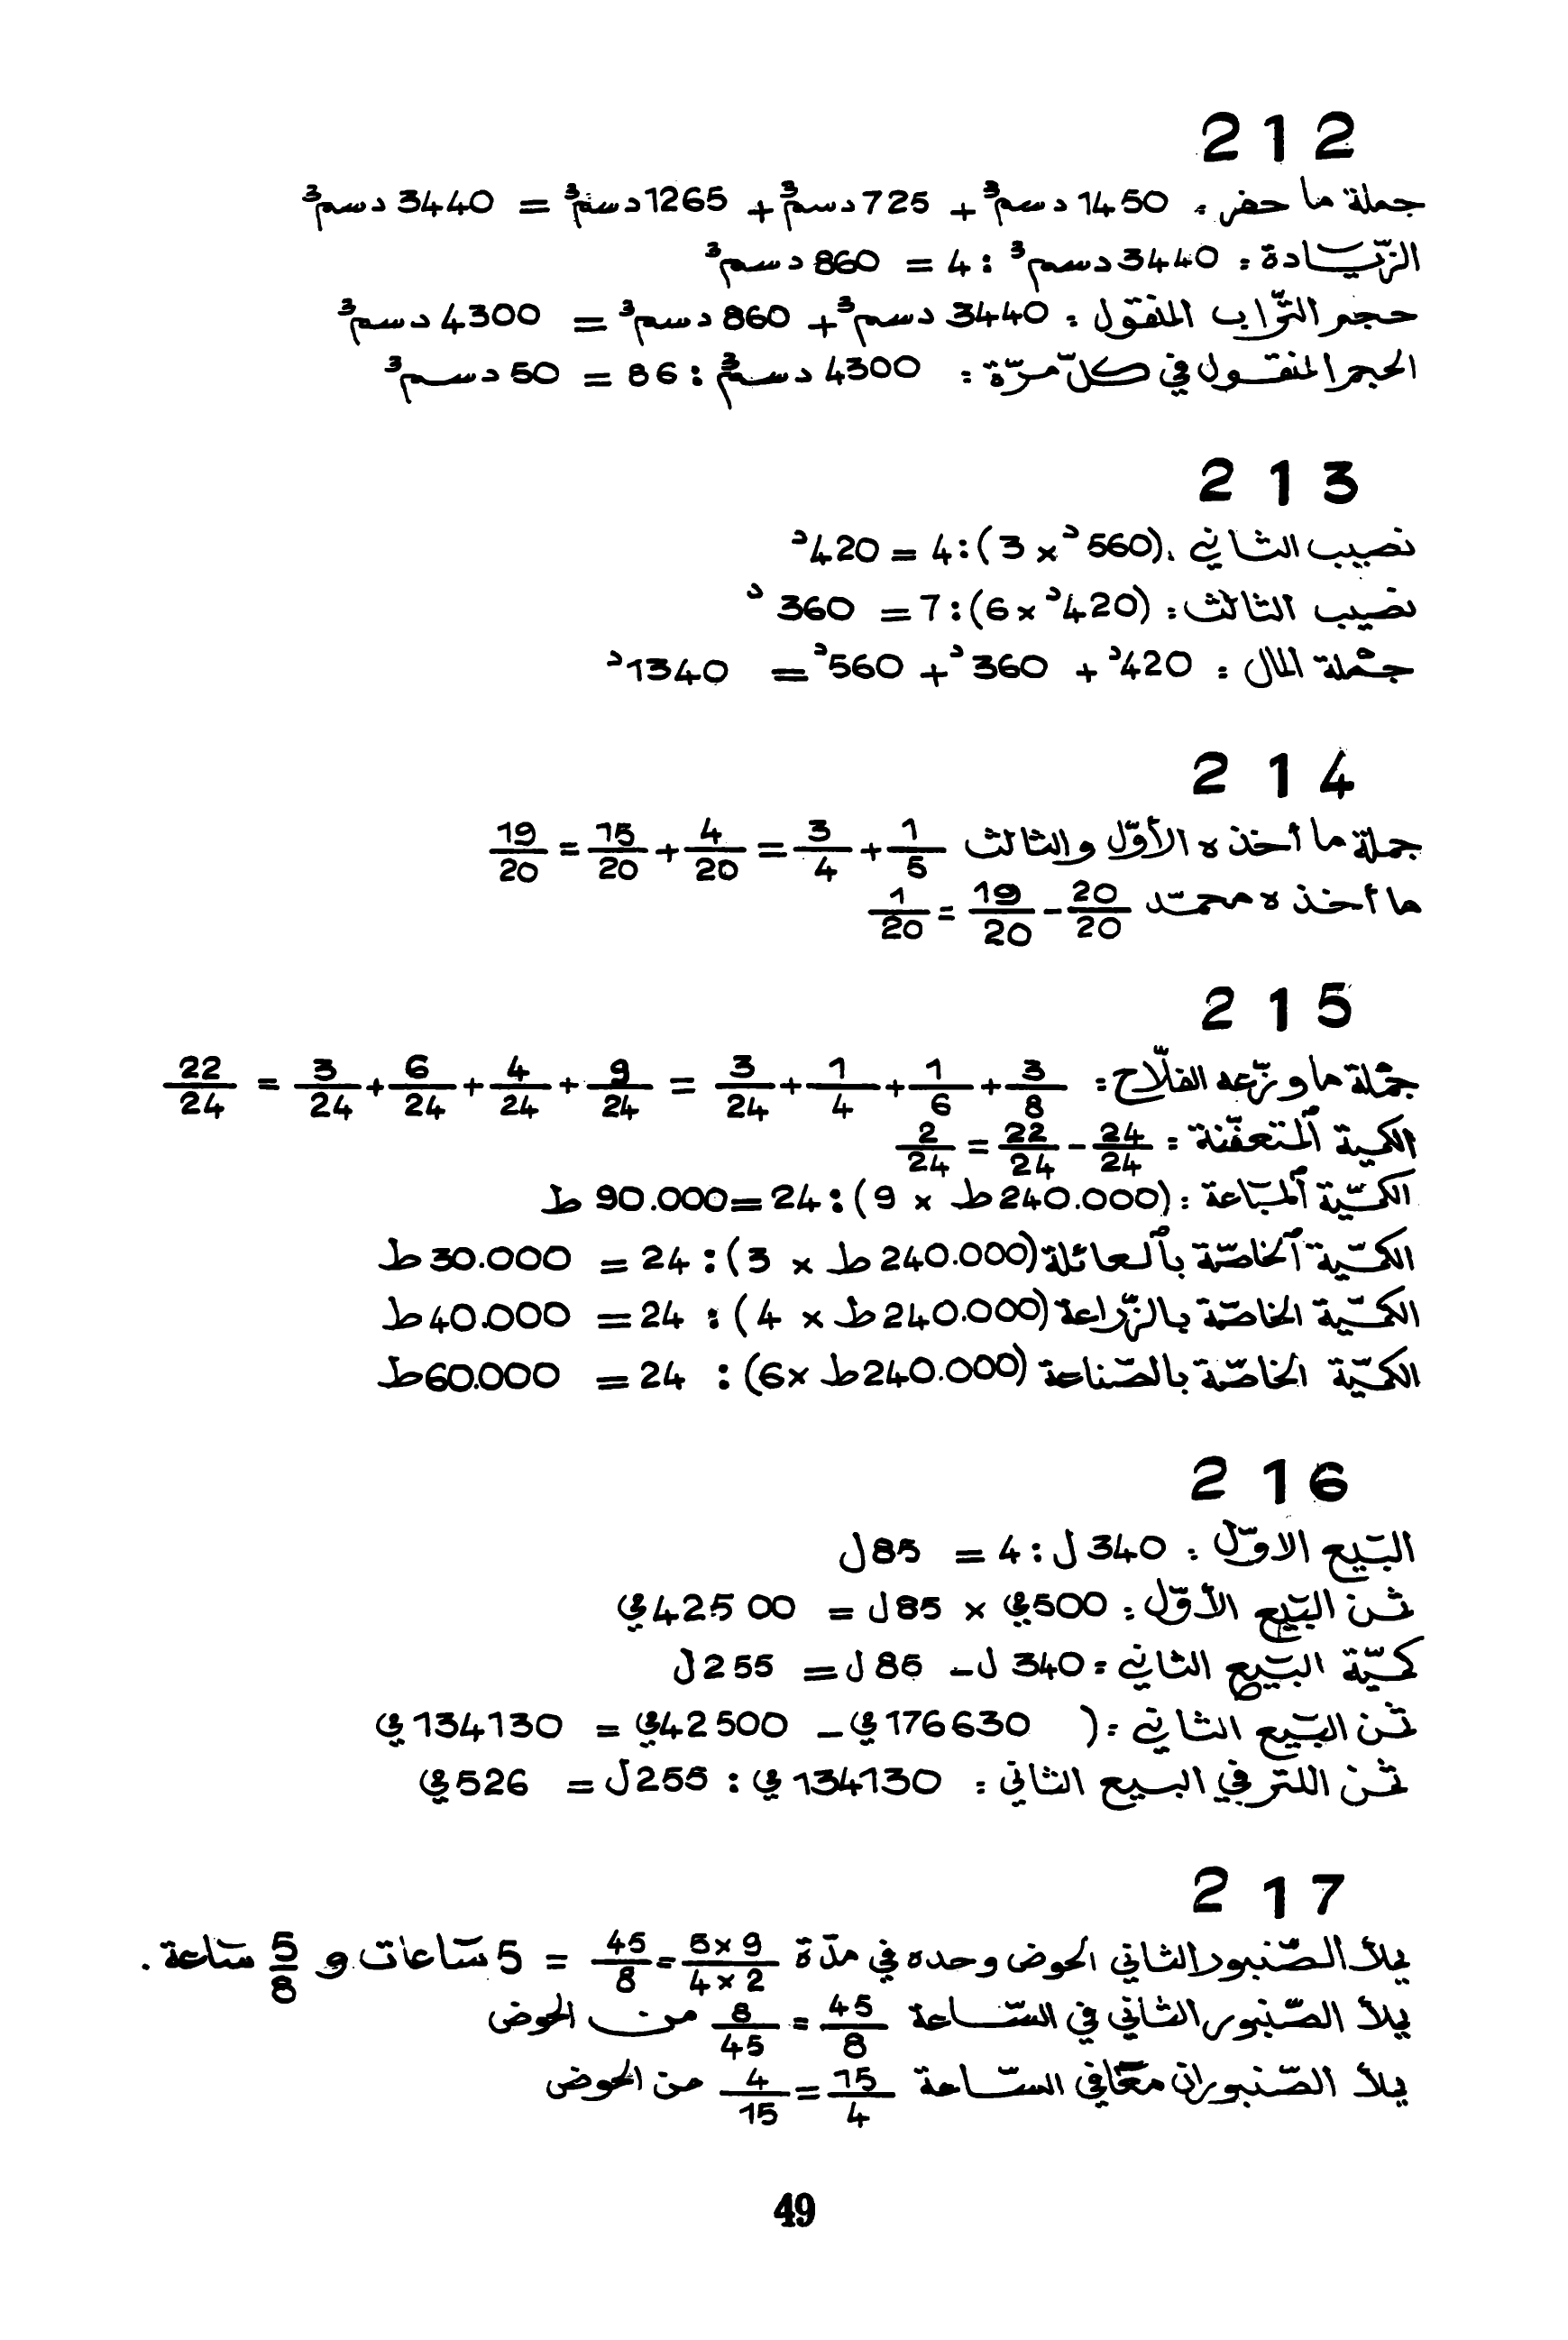 212
جملة ما حفر : 1450 دسم³ + 725 دسم³ + 1265 دسم³ = 3440 دسم³
الزّيادة : 3440 دسم³ : 4 = 860 دسم³
حجم التّراب المنقول : 3440 دسم³ + 860 دسم³ = 4300 دسم³
الحجم المنقول في كلّ مرّة : 4300 دسم³ : 86 = 50 دسم³
213
نصيب الثاني : (560د × 3) : 4 = 420د
نصيب الثالث : (420د × 6) : 7 = 360د
جملة المال : 420د + 360د + 560د = 1340د
214
جملة ما أخذه الأوّل والثالث 1/5 + 3/4 = 4/20 + 15/20 = 19/20
ما أخذه محمّد 20/20 - 19/20 = 1/20
215
جملة ما وزّعه الفلّاح : 3/8 + 1/6 + 1/4 + 3/24 = 9/24 + 4/24 + 6/24 + 3/24 = 22/24
الكمية المتعفّنة : 24/24 - 22/24 = 2/24
الكمّية المباعة : (240.000ط × 9) : 24 = 90.000 ط
الكمّية الخاصّة بالعائلة (240.000ط × 3) : 24 = 30.000ط
الكمّية الخاصّة بالزّراعة (240.000ط × 4) : 24 = 40.000ط
الكميّة الخاصّة بالصّناعة (240.000ط × 6) : 24 = 60.000ط
216
البَيع الاوّل : 340ل : 4 = 85ل
ثمن البَيع الأوّل : 500ي × 85ل = 42500ي
كميّة البَيع الثاني : 340ل - 85ل = 255ل
ثمن البَيع الثاني : ( 176630ي - 42500ي = 134130ي
ثمن اللتر في البيع الثاني : 134130ي : 255ل = 526ي
217
يملأ الصّنبور الثاني الحوض وحده في مدّة 5×9/4×2 = 45/8 = 5 سَاعات و 5/8 سَاعة .
يملأ الصّنبور الثاني في السّاعة 45/8 = 8/45 من الحوض
يملأ الصّنبوران معًا في السّاعة 15/4 = 4/15 من الحوض
49